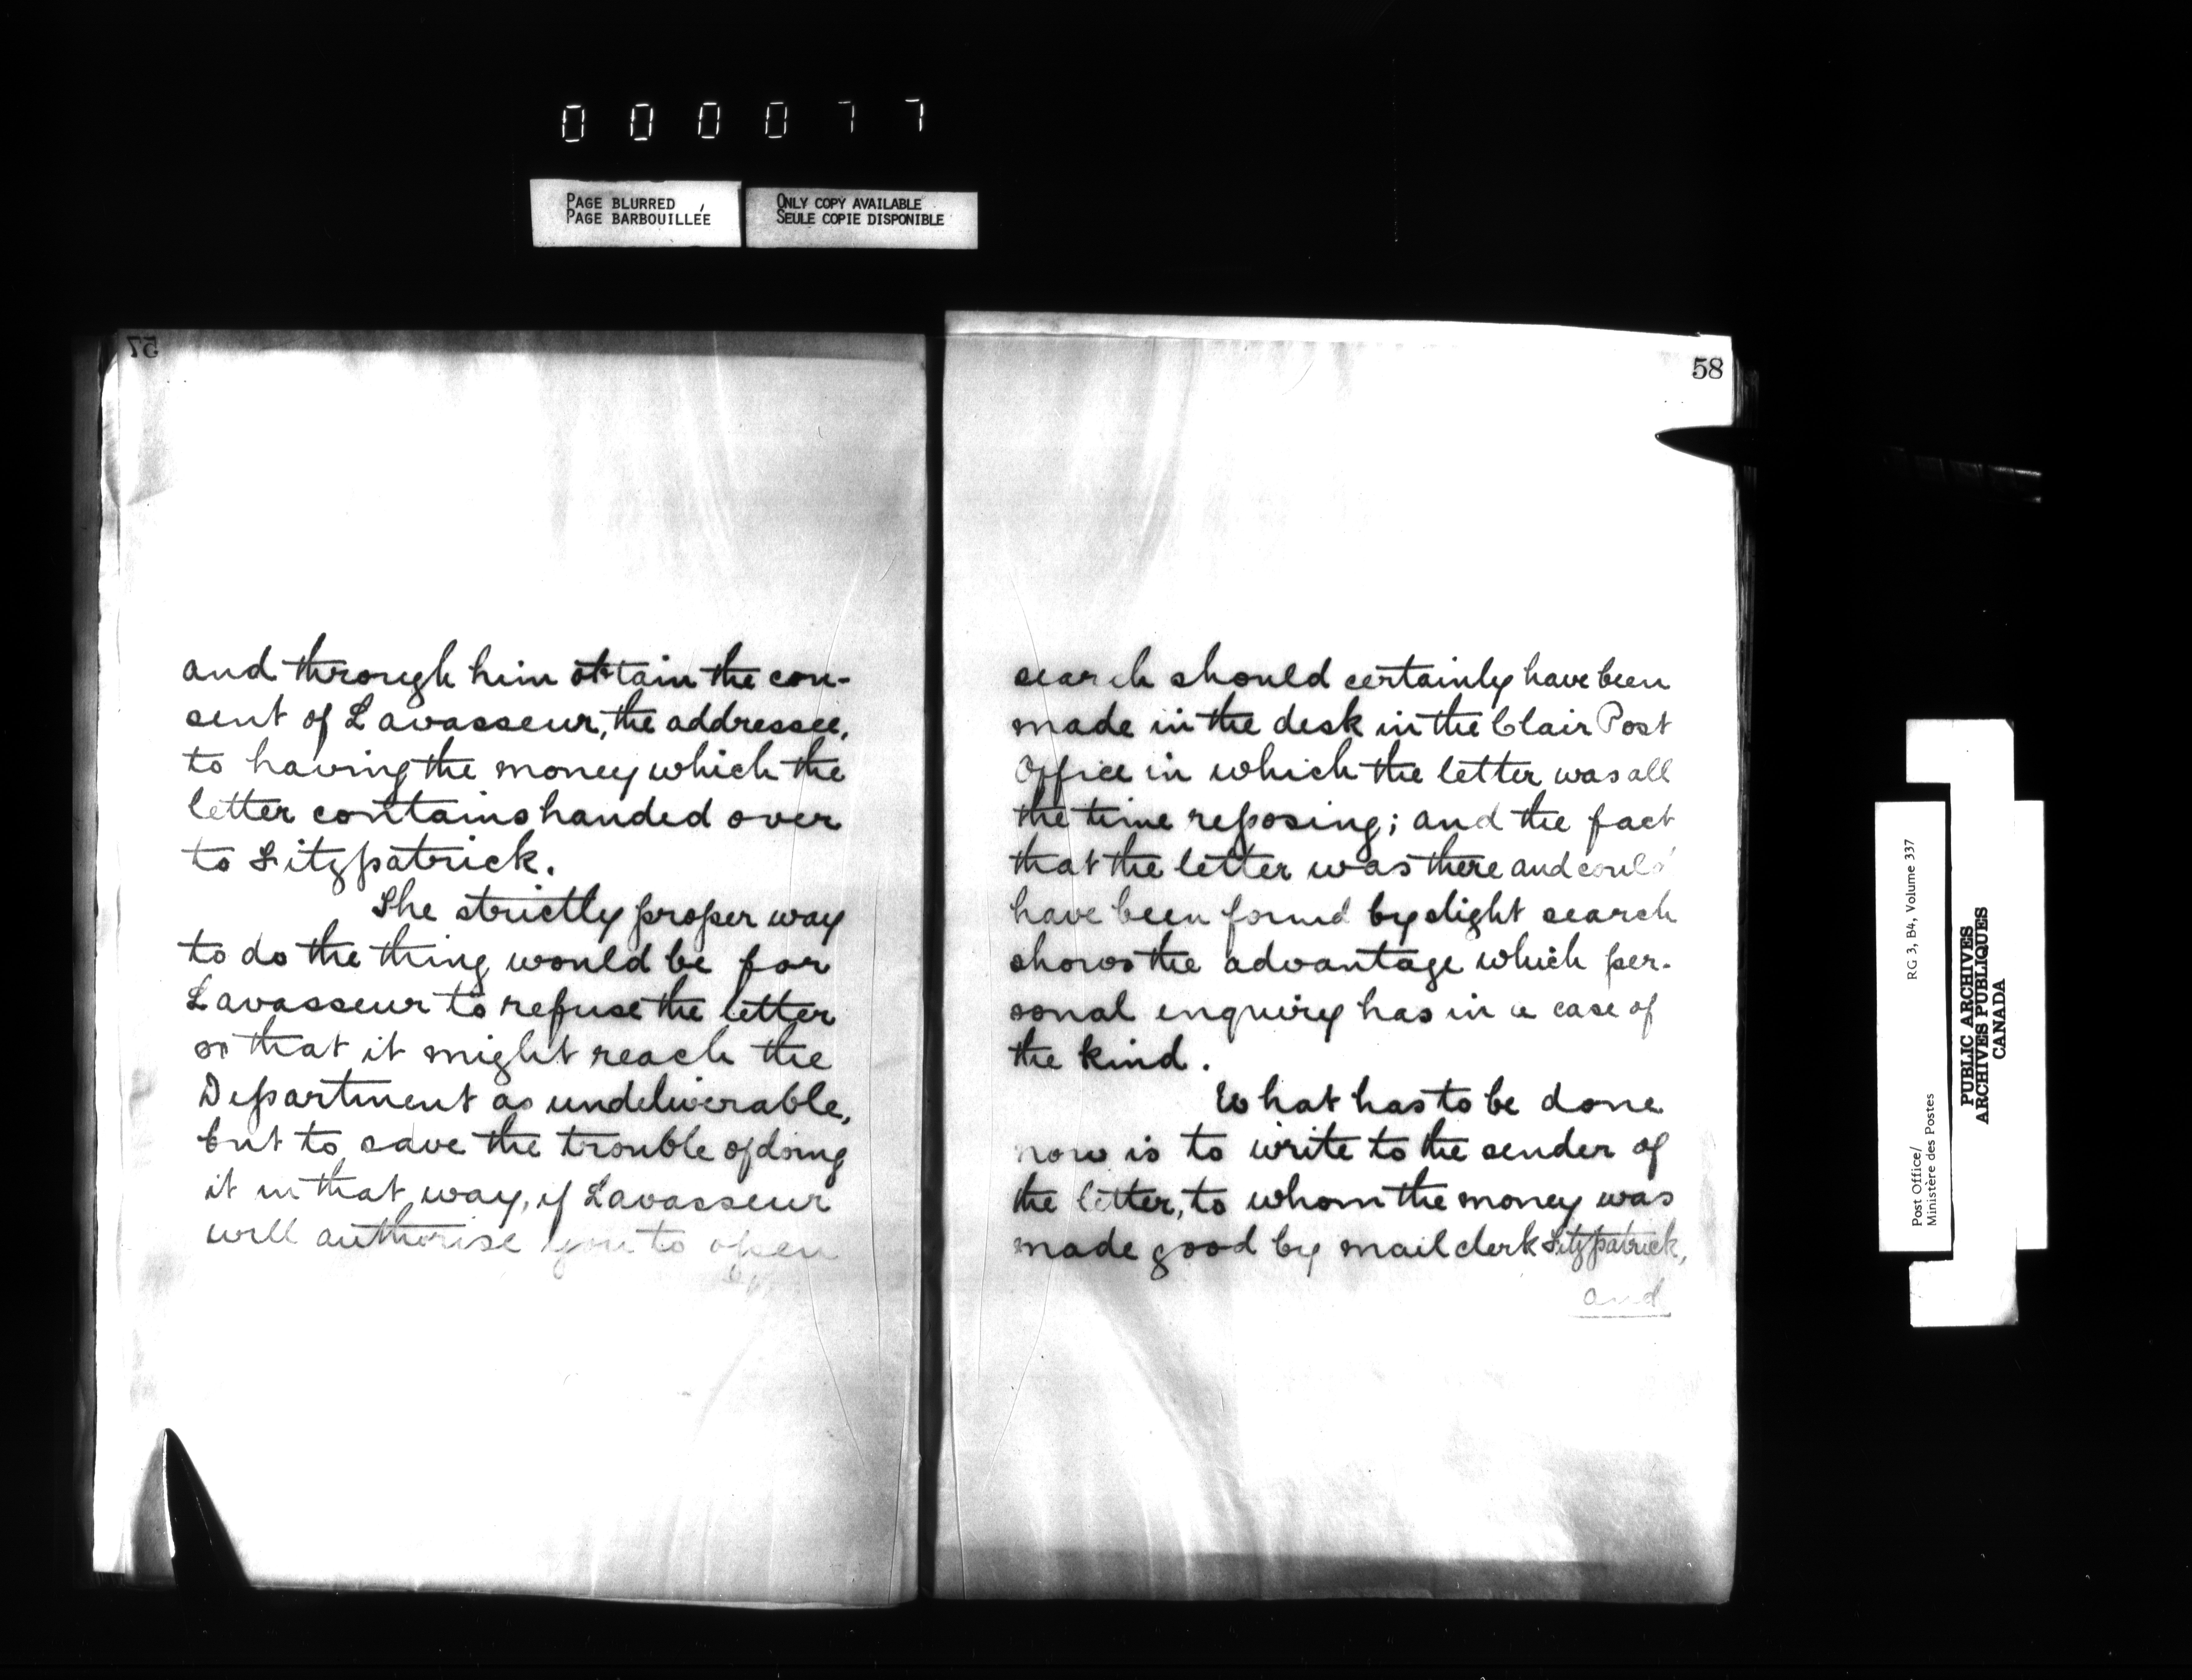 000077
PAGE BLURRED
PAGE BARBOUILLÉE
ONLY COPY AVAILABLE
SEULE COPIE DISPONIBLE
57
and through him obtain the con-
sent of Lavasseur, the addressee,
to having the money which the
letter contains handed over
to Fitzpatrick.
The strictly proper way
to do the thing would be for
Lavasseur to refuse the letter
so that it might reach the
Department as undeliverable,
but to save the trouble of doing
it in that way, if Lavasseur
will authorise you to open
58
search should certainly have been
made in the desk in the Clair Post
Office in which the letter was all
the time reposing; and the fact
that the letter was there and could
have been found by slight search
shows the advantage which per-
sonal enquiry has in a case of
the kind.
What has to be done
now is to write to the sender of
the letter, to whom the money was
made good by mail clerk Fitzpatrick,
and
Post Office/
Ministère des Postes
RG 3, B4, Volume 337
PUBLIC ARCHIVES
ARCHIVES PUBLIQUES
CANADA